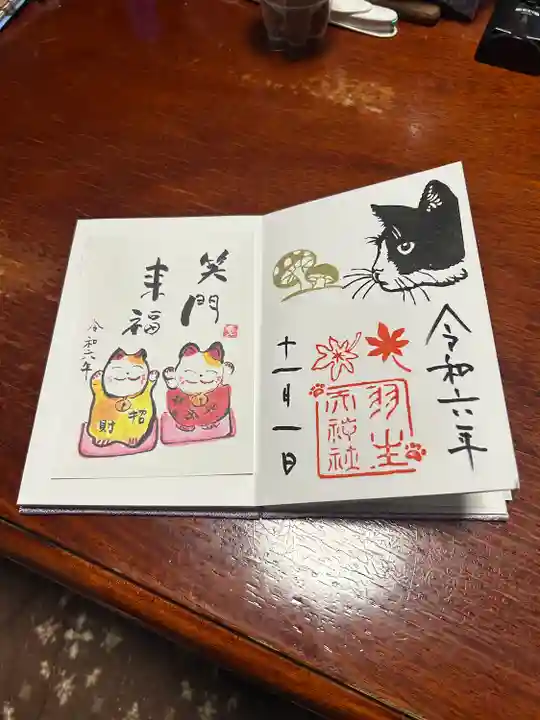 令和六年
羽生
天神社
十一月一日
笑門
来福
令和六年
招
財